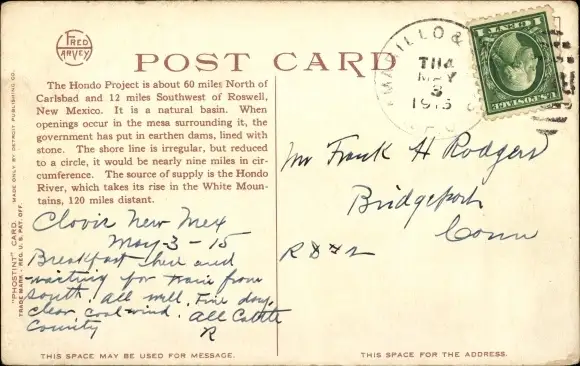 FRED HARVEY
POST CARD
The Hondo Project is about 60 miles North of
Carlsbad and 12 miles Southwest of Roswell,
New Mexico. It is a natural basin. When
openings occur in the mesa surrounding it, the
government has put in earthen dams, lined with
stone. The shore line is irregular, but reduced
to a circle, it would be nearly nine miles in cir-
cumference. The source of supply is the Hondo
River, which takes its rise in the White Moun-
tains, 120 miles distant.
"PHOSTINT" CARD MADE ONLY BY DETROIT PUBLISHING CO.
TRADE MARK - REG. U.S. PAT. OFF.
Clovis New Mex
May-3-15
Breakfast here and
waiting for train from
south. all well. Fine day,
clear, cool wind. all Cattle
County
R
THIS SPACE MAY BE USED FOR MESSAGE.
AMARILLO &
MAY
3
1915
U.S. POSTAGE
Mr Frank H Rodgers
Bridgeport
Conn
R D #2
THIS SPACE FOR THE ADDRESS.